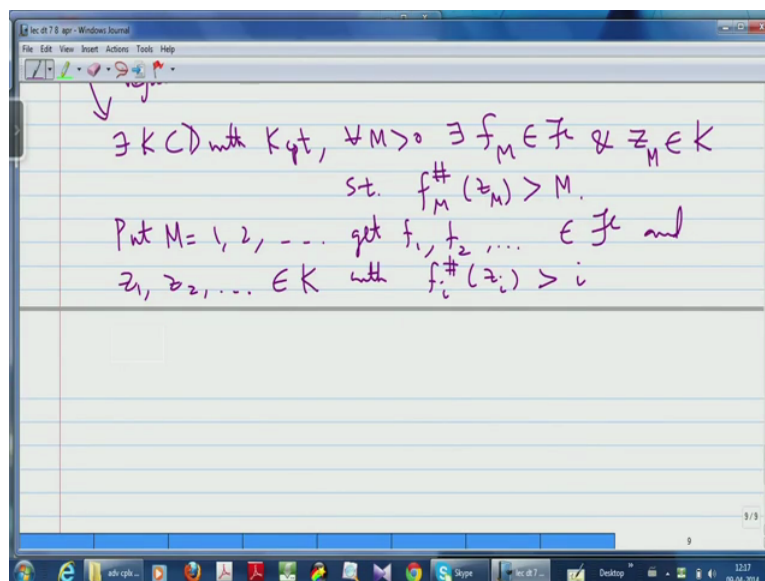 lec dt 7 8 apr - Windows Journal
File Edit View Insert Actions Tools Help
∃ K ⊂ D with K cpt, ∀ M > 0 ∃ f_M ∈ ℱ & z_M ∈ K
s.t. f_M^#(z_M) > M.
Put M = 1, 2, ... get f_1, f_2, ... ∈ ℱ and
z_1, z_2, ... ∈ K with f_i^#(z_i) > i
9/9
9
adv cplx ...
Skype
lec dt 7 ...
Desktop
12:17
09-04-2014